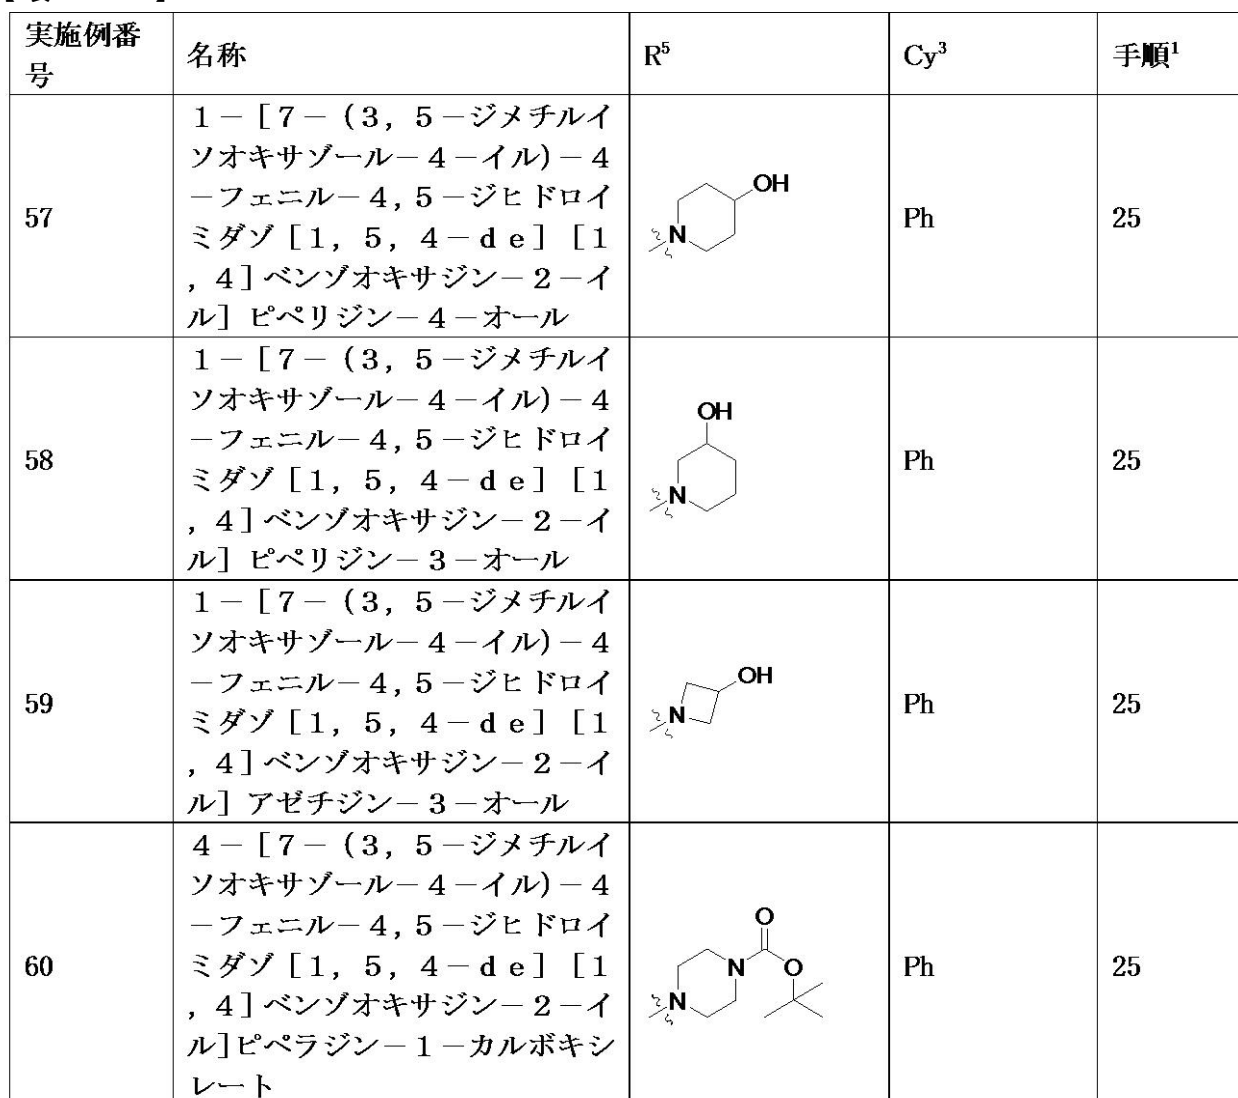 実施例番
号
名称
R⁵
Cy³
手順¹
57
1－[7－(3, 5－ジメチルイ
ソオキサゾール－4－イル)－4
－フェニル－4, 5－ジヒドロイ
ミダゾ[1, 5, 4－de] [1
, 4]ベンゾオキサジン－2－イ
ル] ピペリジン－4－オール
OH
N
Ph
25
58
1－[7－(3, 5－ジメチルイ
ソオキサゾール－4－イル)－4
－フェニル－4, 5－ジヒドロイ
ミダゾ[1, 5, 4－de] [1
, 4]ベンゾオキサジン－2－イ
ル] ピペリジン－3－オール
OH
N
Ph
25
59
1－[7－(3, 5－ジメチルイ
ソオキサゾール－4－イル)－4
－フェニル－4, 5－ジヒドロイ
ミダゾ[1, 5, 4－de] [1
, 4]ベンゾオキサジン－2－イ
ル] アゼチジン－3－オール
OH
N
Ph
25
60
4－[7－(3, 5－ジメチルイ
ソオキサゾール－4－イル)－4
－フェニル－4, 5－ジヒドロイ
ミダゾ[1, 5, 4－de] [1
, 4]ベンゾオキサジン－2－イ
ル]ピペラジン－1－カルボキシ
レート
O
N
O
N
Ph
25